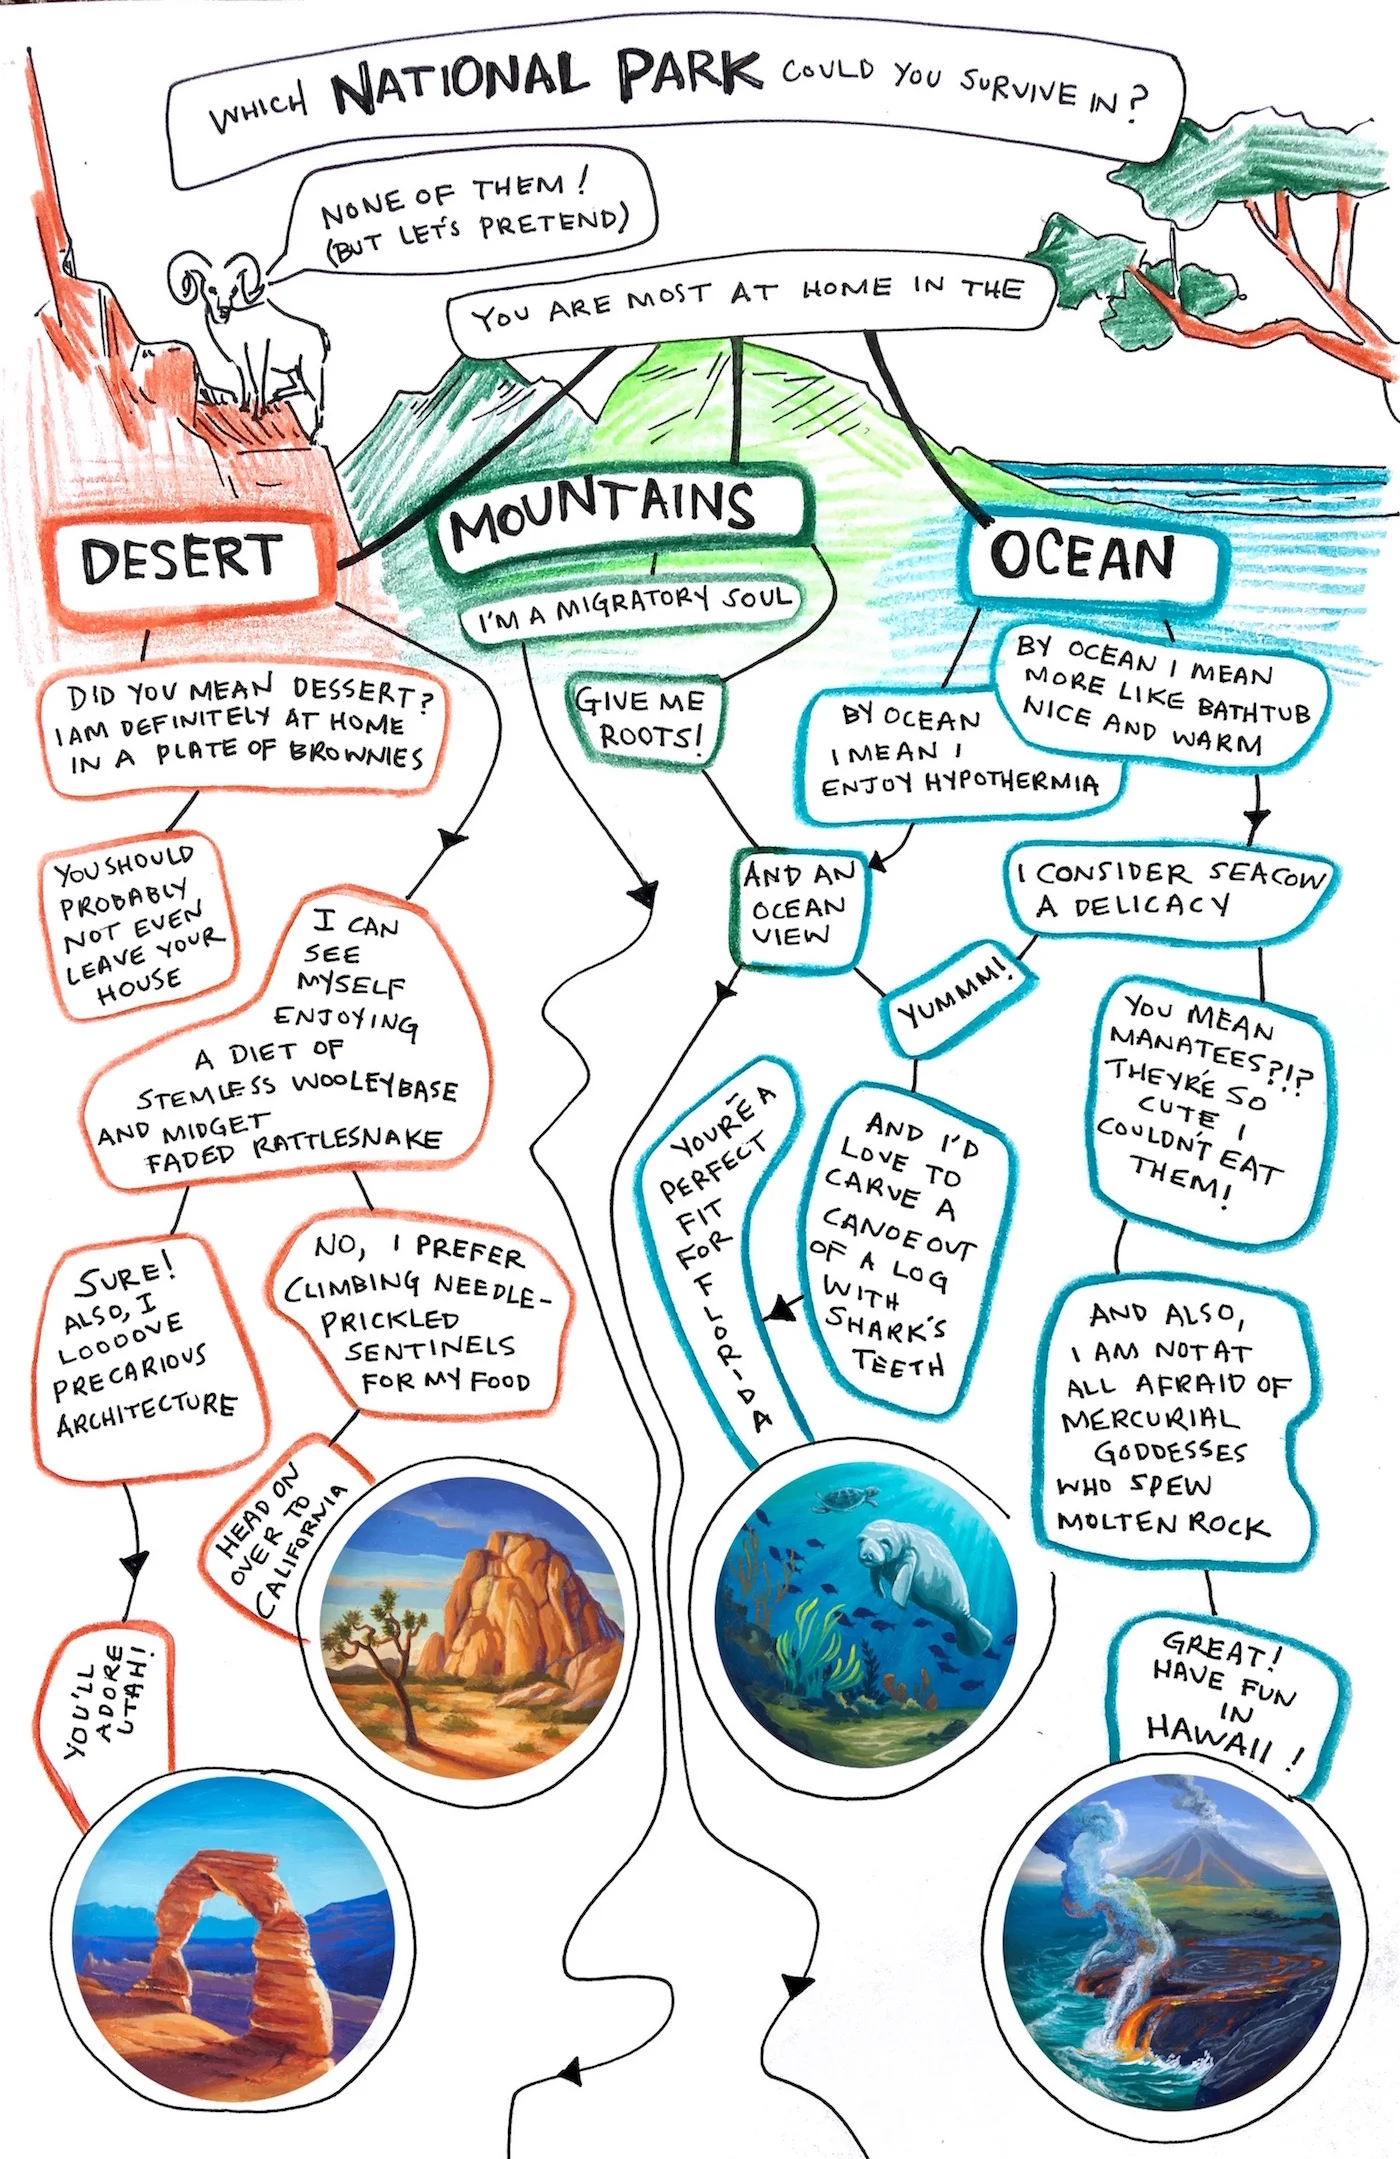 WHICH NATIONAL PARK COULD YOU SURVIVE IN?
NONE OF THEM!
(BUT LET'S PRETEND)
YOU ARE MOST AT HOME IN THE
DESERT
MOUNTAINS
OCEAN
I'M A MIGRATORY SOUL
DID YOU MEAN DESSERT?
I AM DEFINITELY AT HOME
IN A PLATE OF BROWNIES
GIVE ME
ROOTS!
BY OCEAN
I MEAN I
ENJOY HYPOTHERMIA
BY OCEAN I MEAN
MORE LIKE BATHTUB
NICE AND WARM
YOU SHOULD
PROBABLY
NOT EVEN
LEAVE YOUR
HOUSE
I CAN
SEE
MYSELF
ENJOYING
A DIET OF
STEMLESS WOOLEYBASE
AND MIDGET
FADED RATTLESNAKE
AND AN
OCEAN
VIEW
I CONSIDER SEACOW
A DELICACY
YUMMM!
YOU MEAN
MANATEES?!?
THEY'RE SO
CUTE I
COULDN'T EAT
THEM!
SURE!
ALSO, I
LOOOOVE
PRECARIOUS
ARCHITECTURE
NO, I PREFER
CLIMBING NEEDLE-
PRICKLED
SENTINELS
FOR MY FOOD
YOU'RE A
PERFECT
FIT
FOR
FLORIDA
AND I'D
LOVE TO
CARVE A
CANOE OUT
OF A LOG
WITH
SHARK'S
TEETH
AND ALSO,
I AM NOT AT
ALL AFRAID OF
MERCURIAL
GODDESSES
WHO SPEW
MOLTEN ROCK
HEAD ON
OVER TO
CALIFORNIA
YOU'LL
ADORE
UTAH!
GREAT!
HAVE FUN
IN
HAWAII!